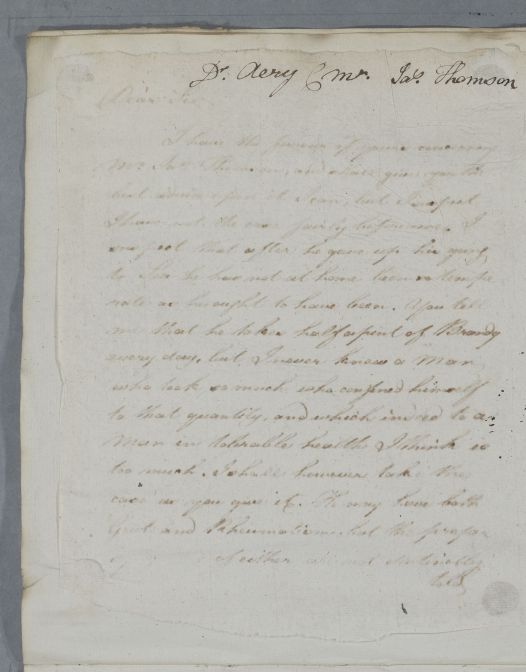 Dr. Aery C Mr. Jas. Thomson
Dear Sir
I have the favour of yours concerning
Mr. Jas. Thomson, and shall give you the
best advice upon it I can, but I suspect
I have not the case fairly before me. I
suspect that after he gave up his going
to Sea he has not at home been so tempe
rate as he ought to have been. You tell
me that he takes half a pint of Brandy
every day, but I never knew a Man
who took so much who confined himself
to that quantity, and which indeed to a
Man in tolerable health I think is
too much. I shall however take the
case as you give it. He may have both
Gout and Rheumatism, but the
Neither